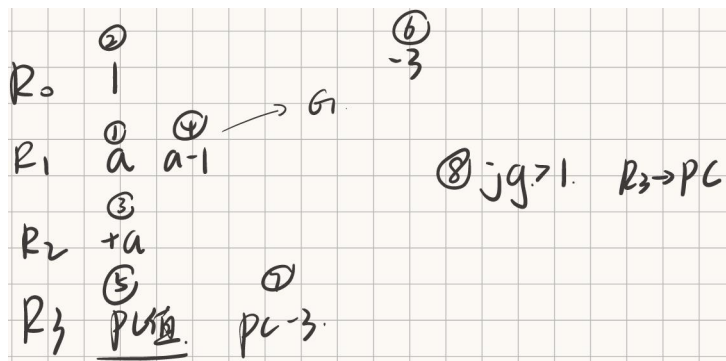 ② ⑥
R₀ 1 -3
① ④ → G
R₁ a a-1 ⑧ jg>1. R₃→PC
③
R₂ +a
⑤ ⑦
R₃ PC值. PC-3.